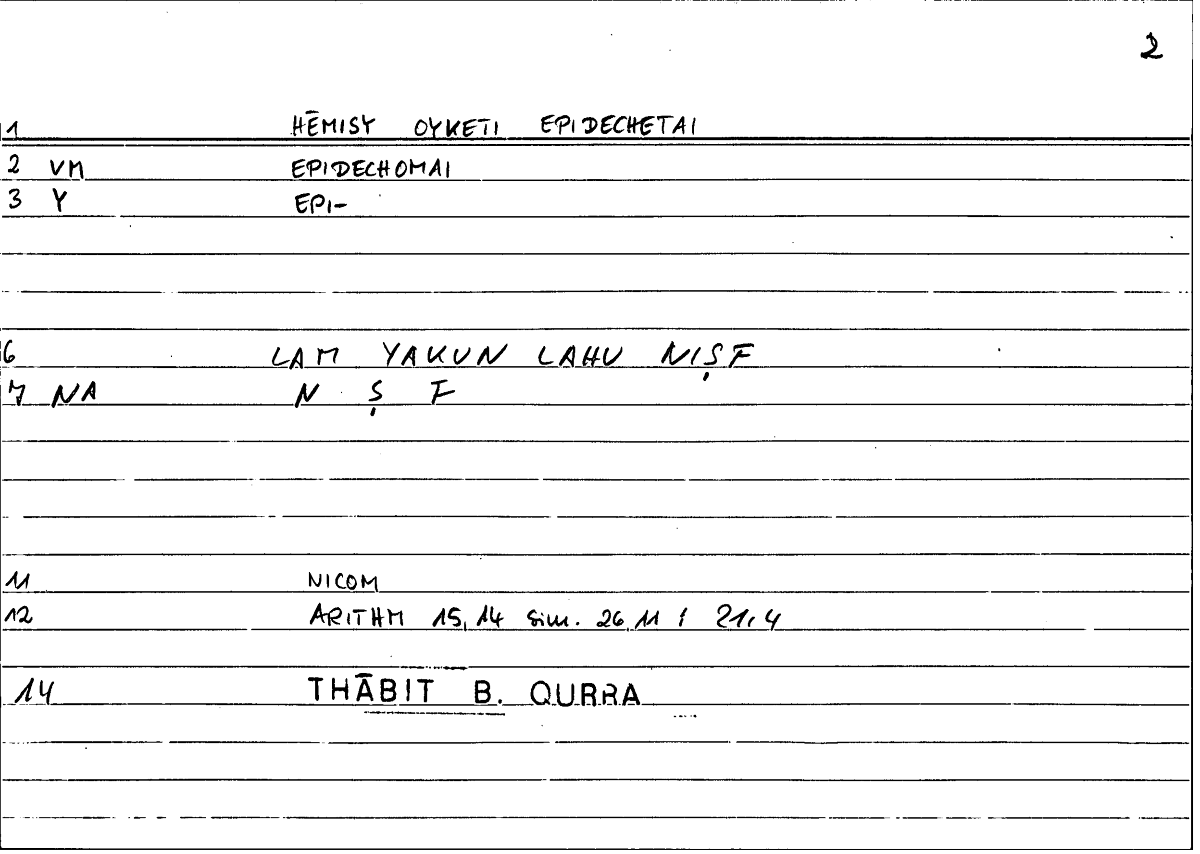 2
1 HĒMISY OYKETI EPIDECHETAI
2 VM EPIDECHOMAI
3 Y EPI-
6 LAM YAKUN LAHU NIṢF
7 NA N Ṣ F
11 NICOM
12 ARITHM 15,14 sim. 26,11 ; 21,4
14 THĀBIT B. QURRA